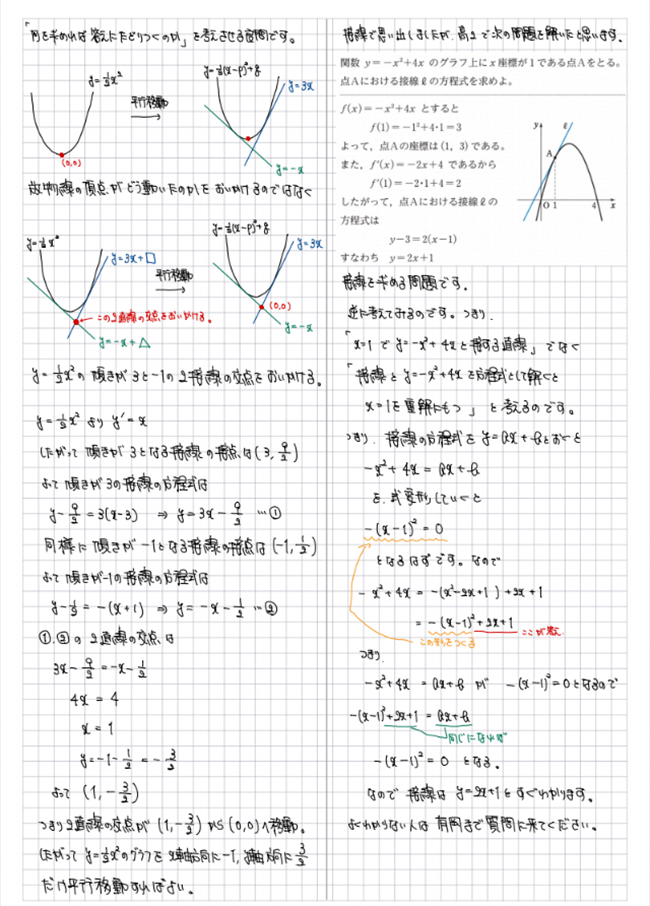 「何を求めれば答えにたどりつくのか」を考えさせる良問です。
y=½x²
平行移動
y=½(x-p)²+q
y=3x
(0,0)
y=-x
放物線の頂点がどう動いたのかをおいかけるのではなく
y=½x²
y=3x+□
平行移動
y=½(x-p)²+q
y=3x
この2直線の交点をおいかける。
(0,0)
y=-x+△
y=-x
y=½x²の傾きが3と-1の2接線の交点をおいかける。
y=½x²より y'=x
したがって 傾きが3となる接線の接点は(3, 9/2)
よって 傾きが3の接線の方程式は
y-9/2=3(x-3) ⇒ y=3x-9/2 …①
同様に傾きが-1となる接線の接点は(-1, ½)
よって傾きが-1の接線の方程式は
y-½=-(x+1) ⇒ y=-x-½ …②
①,②の2直線の交点は
3x-9/2=-x-½
4x=4
x=1
y=-1-½=-3/2
よって (1,-3/2)
つまり2直線の交点が(1,-3/2)から(0,0)へ移動。
したがって y=½x²のグラフをx軸方向に-1,y軸方向に3/2
だけ平行移動すればよい。
接線で思い出しましたが,高2で次の問題を解いたと思います。
関数 y=-x²+4x のグラフ上に x 座標が1である点Aをとる。
点Aにおける接線ℓの方程式を求めよ。
f(x)=-x²+4x とすると
f(1)=-1²+4・1=3
よって,点Aの座標は(1, 3)である。
また,f'(x)=-2x+4 であるから
f'(1)=-2・1+4=2
したがって,点Aにおける接線ℓの
方程式は
y-3=2(x-1)
すなわち y=2x+1
y
ℓ
A
O 1 4 x
接線を求める問題です。
逆に考えてみるのです。つまり,
「x=1で y=-x²+4xと接する直線」でなく
「接線と y=-x²+4xを方程式として解くと
x=1を重解にもつ」と考えるのです。
つまり,接線の方程式を y=ax+bとおくと
-x²+4x=ax+b
を,式変形していくと
-(x-1)²=0
となるはずです。なので
-x²+4x=-(x²-2x+1)+2x+1
=-(x-1)²+2x+1
この形をつくる
ここが答え
つまり
-x²+4x=ax+b が -(x-1)²=0となるので
-(x-1)²+2x+1=ax+b
同じになれば
-(x-1)²=0 となる。
なので 接線は y=2x+1とすぐわかります。
よくわからない人は 有岡まで質問に来てください。